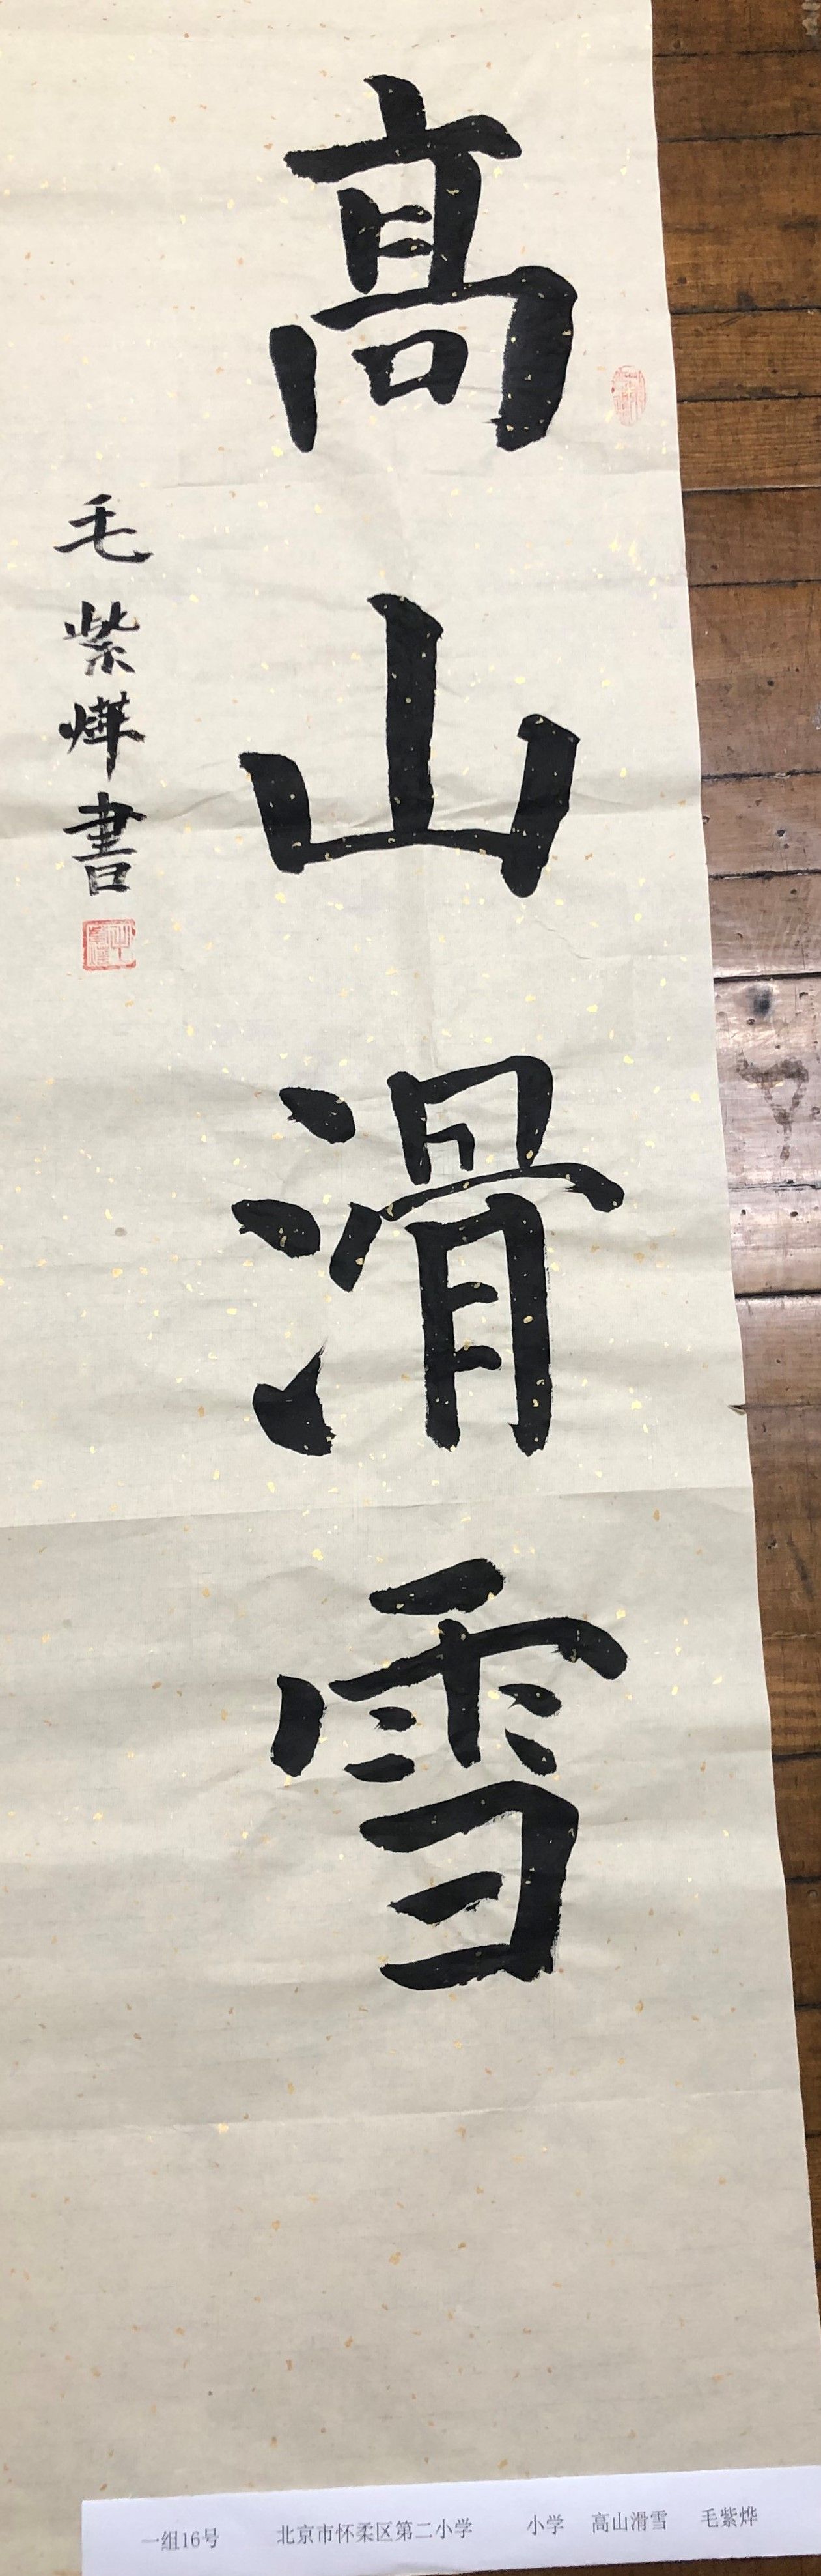 髙山滑雪
毛紫燁書
一组16号 北京市怀柔区第二小学 小学 高山滑雪 毛紫烨